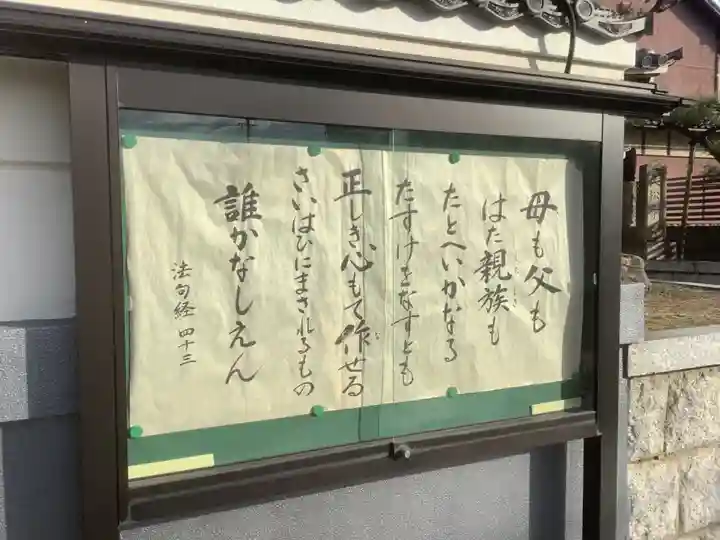 母も父も
はた親族も
たとへいかなる
たすけをなすとも
正しき心もて作せる
さいはひにまされるもの
誰かなしえん
法句経 四十三